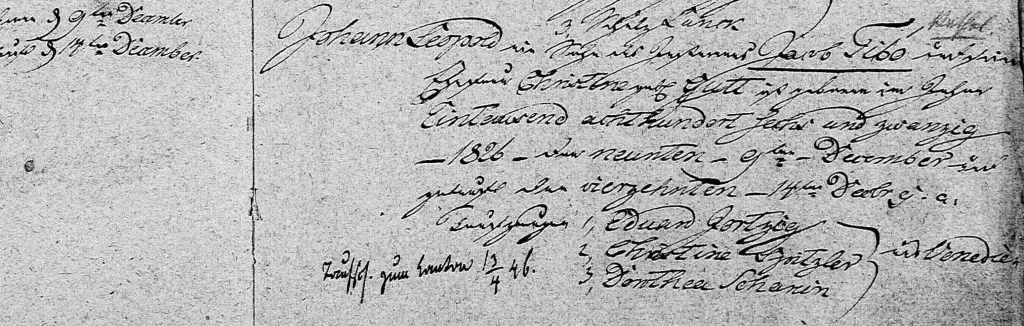 den 9ten December
den 14ten December
3, Schulz Lunok
Johann Leopold ein Sohn des Jacob Tibo und seiner
Ehefrau Christine geb Gutt ist geboren im Jahre
Eintausend achthundert sechs und zwanzig
— 1826 — den neunten — 9ten — December und
getauft den vierzehnten — 14ten Decbr e. a.
Taufzeugen 1, Eduard Gortzig
2, Christine Spitzler
3, Dorothea Scharin
in Venedien
Taufsch. zum Canton 13/4 46.